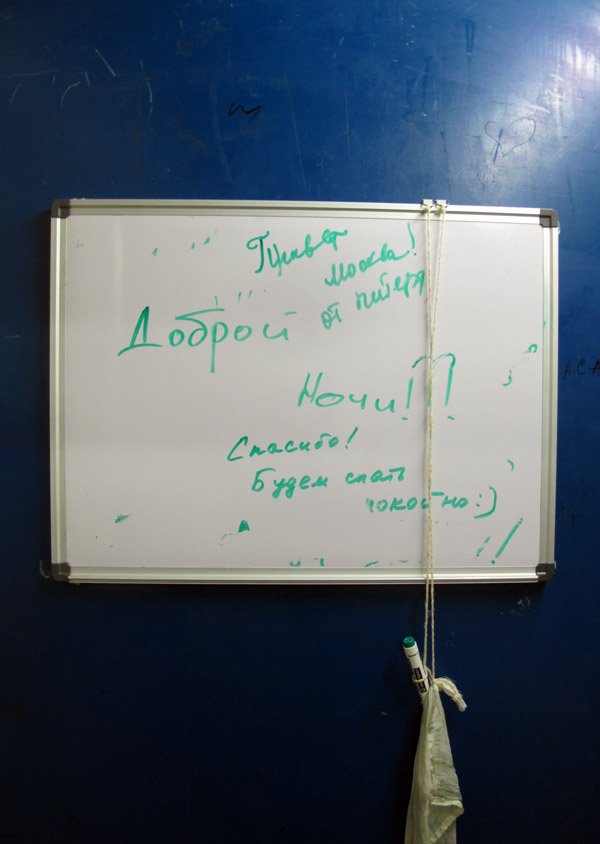 Привет
Москва!
от питера
Доброй
Ночи!
Спасибо!
Будем спать
покойно:)
А.С.А